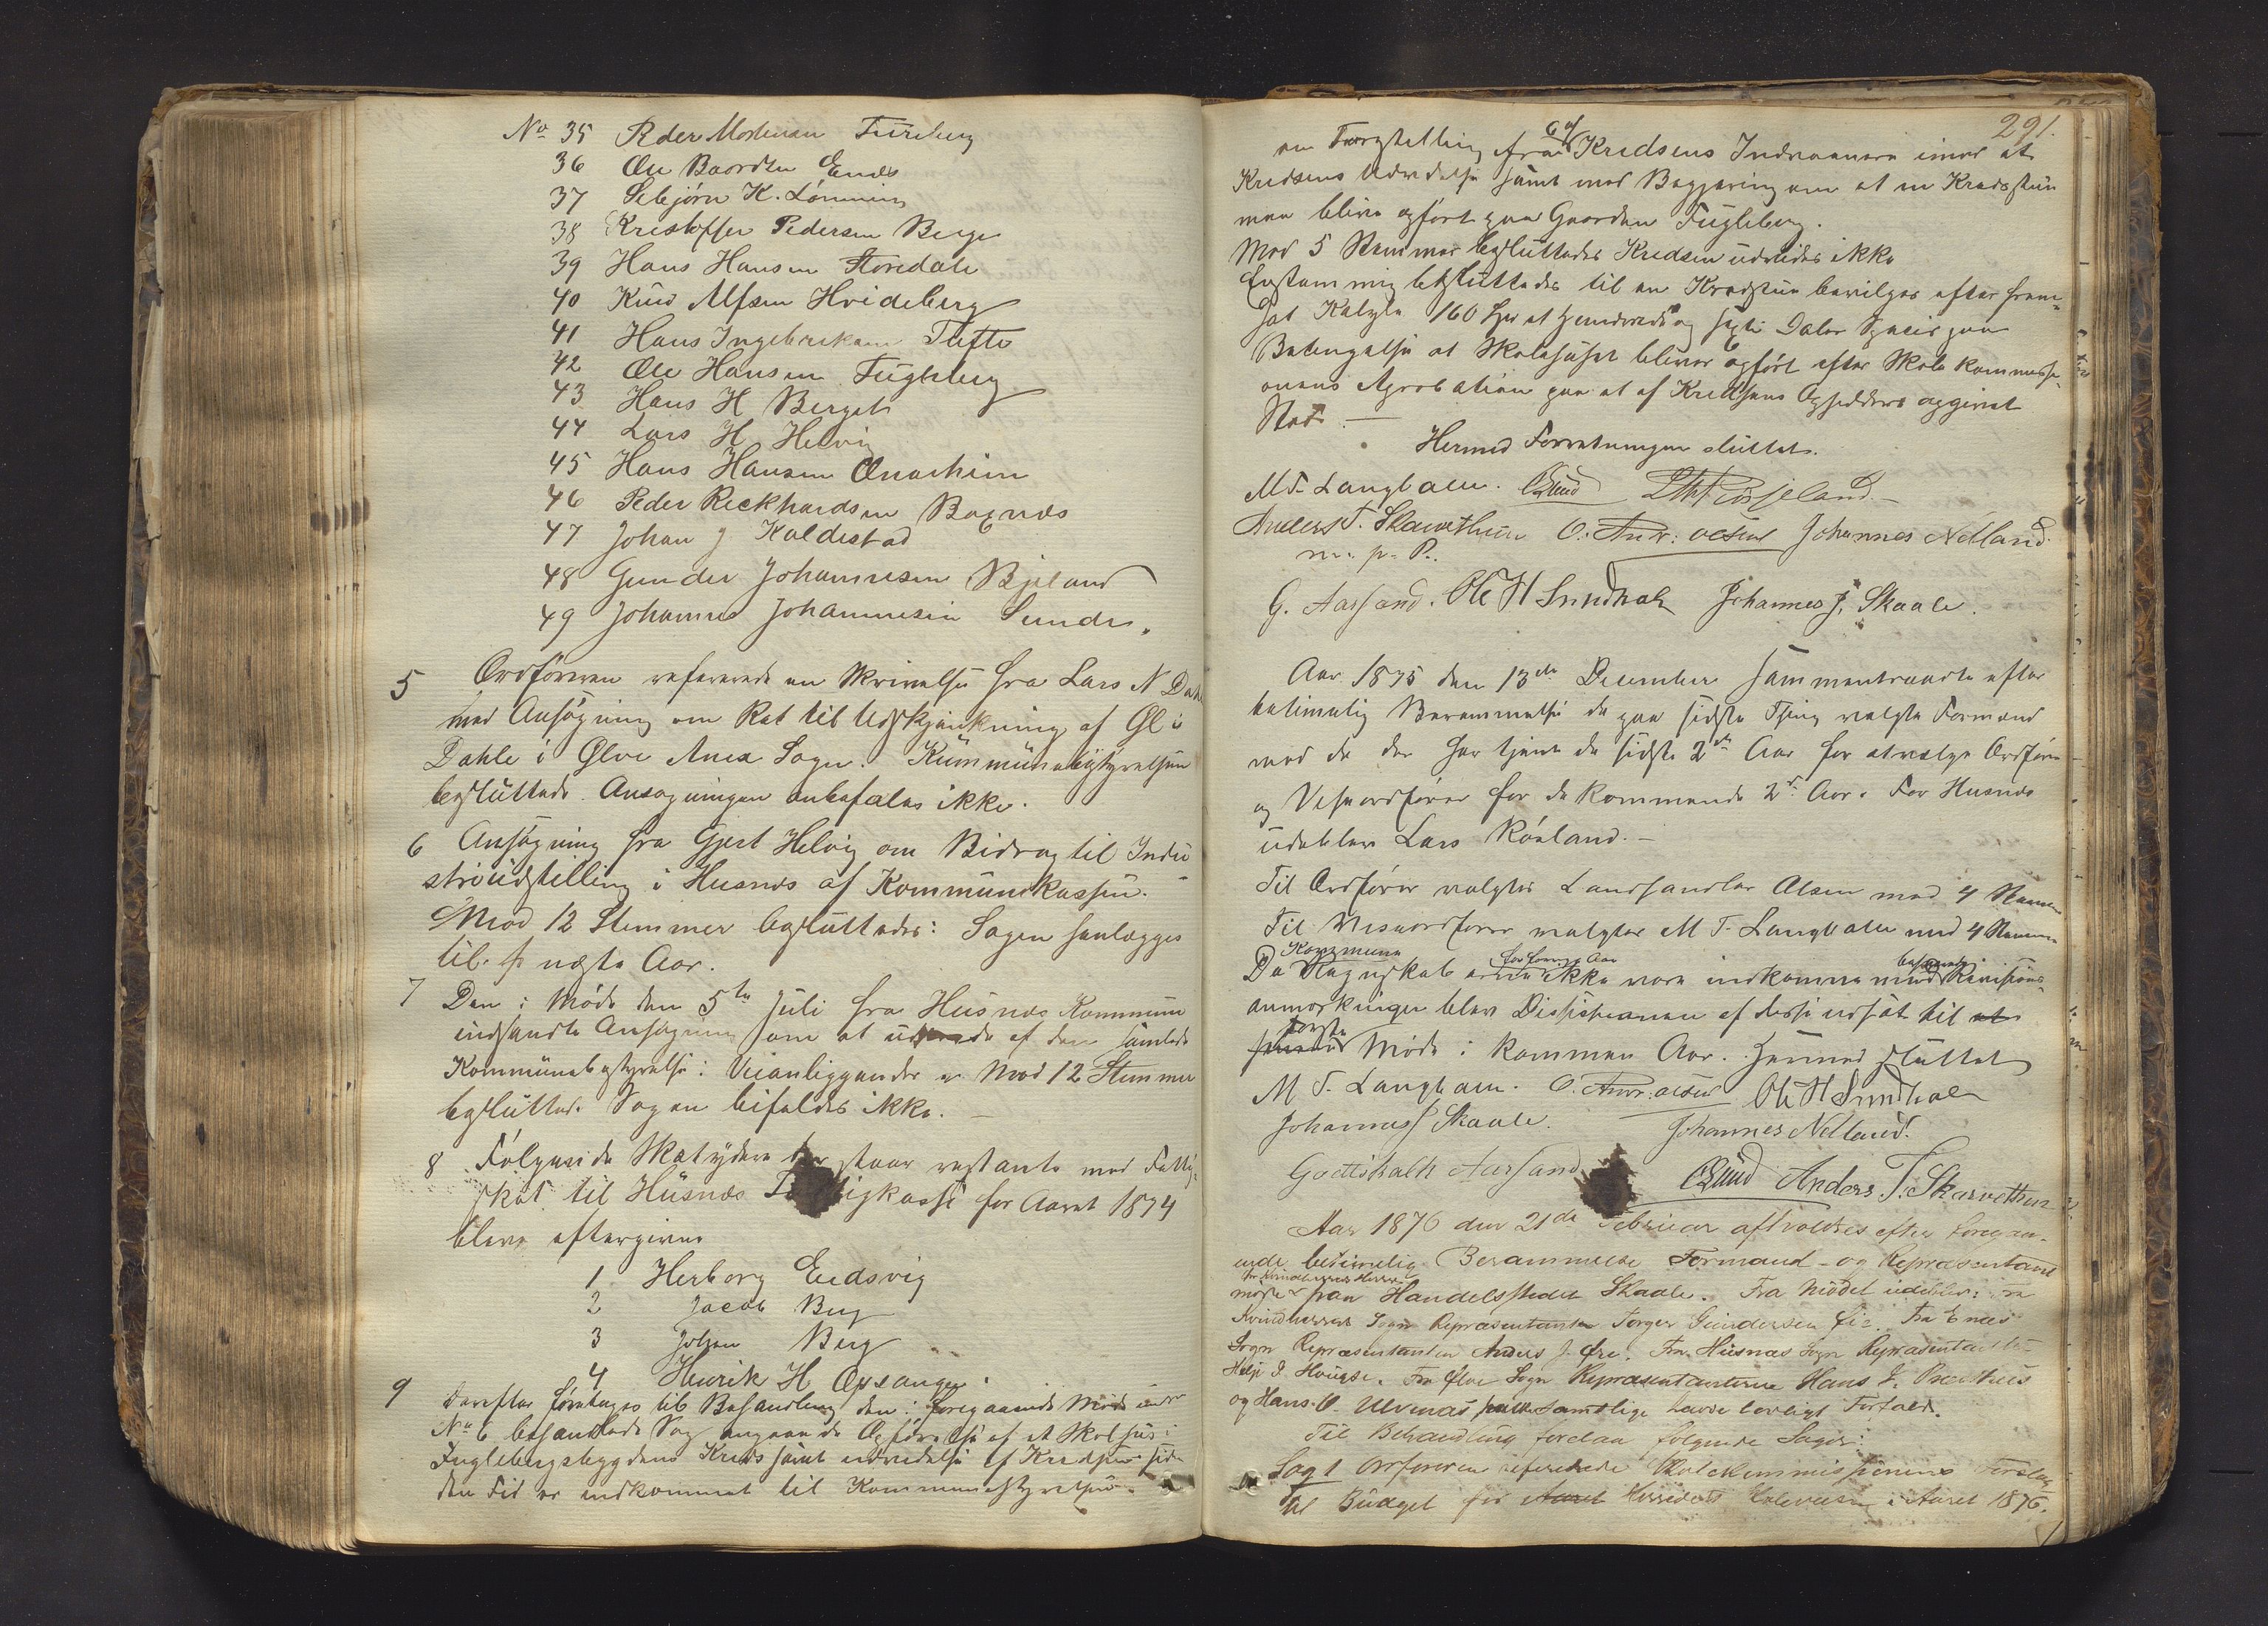 No 35 Peder Mortensen Fureberg
36 Ole Baardsen Enæs
37 Sebjörn K. Lönning
38 Kristoffer Pedersen Berge
39 Hans Hansen Høredale
40 Knud Alfsen Hvideberg
41 Hans Ingebriksen Tufte
42 Ole Hansen Fugleberg
43 Hans H Berget
44 Lars H Helvig
45 Hans Hansen Onarheim
46 Peder Reckhardsen Bognæs
47 Johan J Kaldestad
48 Gunder Johannesen Bjeland
49 Johannes Johannesen Sunde.
5 Ordföreren refererede en Skrivelse fra Lars N Dahle
med Ansögning om Ret til Udskjænkning af Øl i
Dahle i Ølve Anex Sogn. Kummunebestyrelsen
besluttede Ansøgningen anbefales ikke.
6 Ansögning fra Gjert Helvig om Bidrag til Indu
striudstilling i Husnæs af Kommunekassen. -
Mod 12 Stemmer besluttedes: Sagen henlægges
til næste Aar.
7 Den i Möde den 5te Juli fra Husnæs Kommune
indsendte Ansögning om at udtræde af den samlede
Kommunebestyrelse i Veianliggender er Mod 12 Stemmer
besluttet. Sagen bifaldes ikke. -
8 Fölgende Skatydere der staar restante med Fattig-
skat til Husnæs Fattigkasse for Aaret 1874
blev eftergivne
1 Herborg Eidsvig
2 Jacob Berg
3 Johan Berg
4 Henrik H Opsanger.
9 Derefter företages til Behandling den i foregaaende Möde under
No 6 behandlede Sag angaaende Opförelse af et Skolhus i
Fuglebergsbygdens Kreds samt udvidelse af Kredsen siden
den Tid er indkommet til Kommunestyrelsen
291.
en Forestilling fra Kredsens Indvaanere imod at
Kredsens Udvidelse samt med Begjæring om at en Kredsstue
maa blive opfört paa Gaarden Fugleberg.
Mod 5 Stemmer besluttedes Kredsen udvides ikke
Enstemmig besluttedes til en Kredsstue bevilges efter frem-
sat Kalkyle 160 Spd et hundrede og sexti Daler Specie paa
Betingelse at Skolehuset bliver opfört efter Skolekommissi-
onens Aprobation paa et af Kredsens Opsiddere opgivet
Sted. -
Hermed Forretningen sluttet.
M T. Langhalm.
Anders T. Skarvethun O. Andr: Olsen Johannes Nelland.
m. p. P.
G. Aarsand. Ole H Sundhal Johannes J. Skaale.
Aar 1875 den 13de December sammentraadte efter
betimelig Berammelse de paa sidste Thing valgte Formænd
med de der har tjent de sidste 2de Aar for at vælge Ordförer
og Viseordförer for de kommende 2de Aar. For Husnæs
udeblev Lars Röaland. -
Til Ordförer valgtes Landhandler Olsen med 4 Stemmer
Til Viseordförer valgtes M T. Langhalm med 4 Stemmer
Da Regnskab for forrige Aar ikke vare indkomne med Revisions-
anmærkninger blev Dissisionen af disse udsat til
förste Möde i kommen Aar. Hermed sluttet
M T. Langhalm. O. Andr: Olsen Ole H Sundhal
Johannes J Skaale. Johannes Nelland.
Gottschalk Aarsand Anders T. Skarvethun
Aar 1876 den 21de Februar afholdtes efter foregaa-
ende betimelig Berammelse Formand- og Repræsentant
möde paa Handelsstedet Skaale. Fra Mödet udeblev: fra
Kvindherred Sogn Repræsentanten Torger Gundersen Lie. Fra Enæs
Sogn Repræsentanten Anders J. Øre. Fra Husnæs Sogn Repræsentanten
Helje J. Houge. Fra Ølve Sogn Repræsentanterne Hans J.
og Hans O. Ulvenæs samtlige havde lovligt Forfald.
Til Behandling forelaa fölgende Sager:
Sag 1 Ordföreren refererede Skolekommissionens Forslag
til Budget for Herredets Skolevæsen i Aaret 1876.